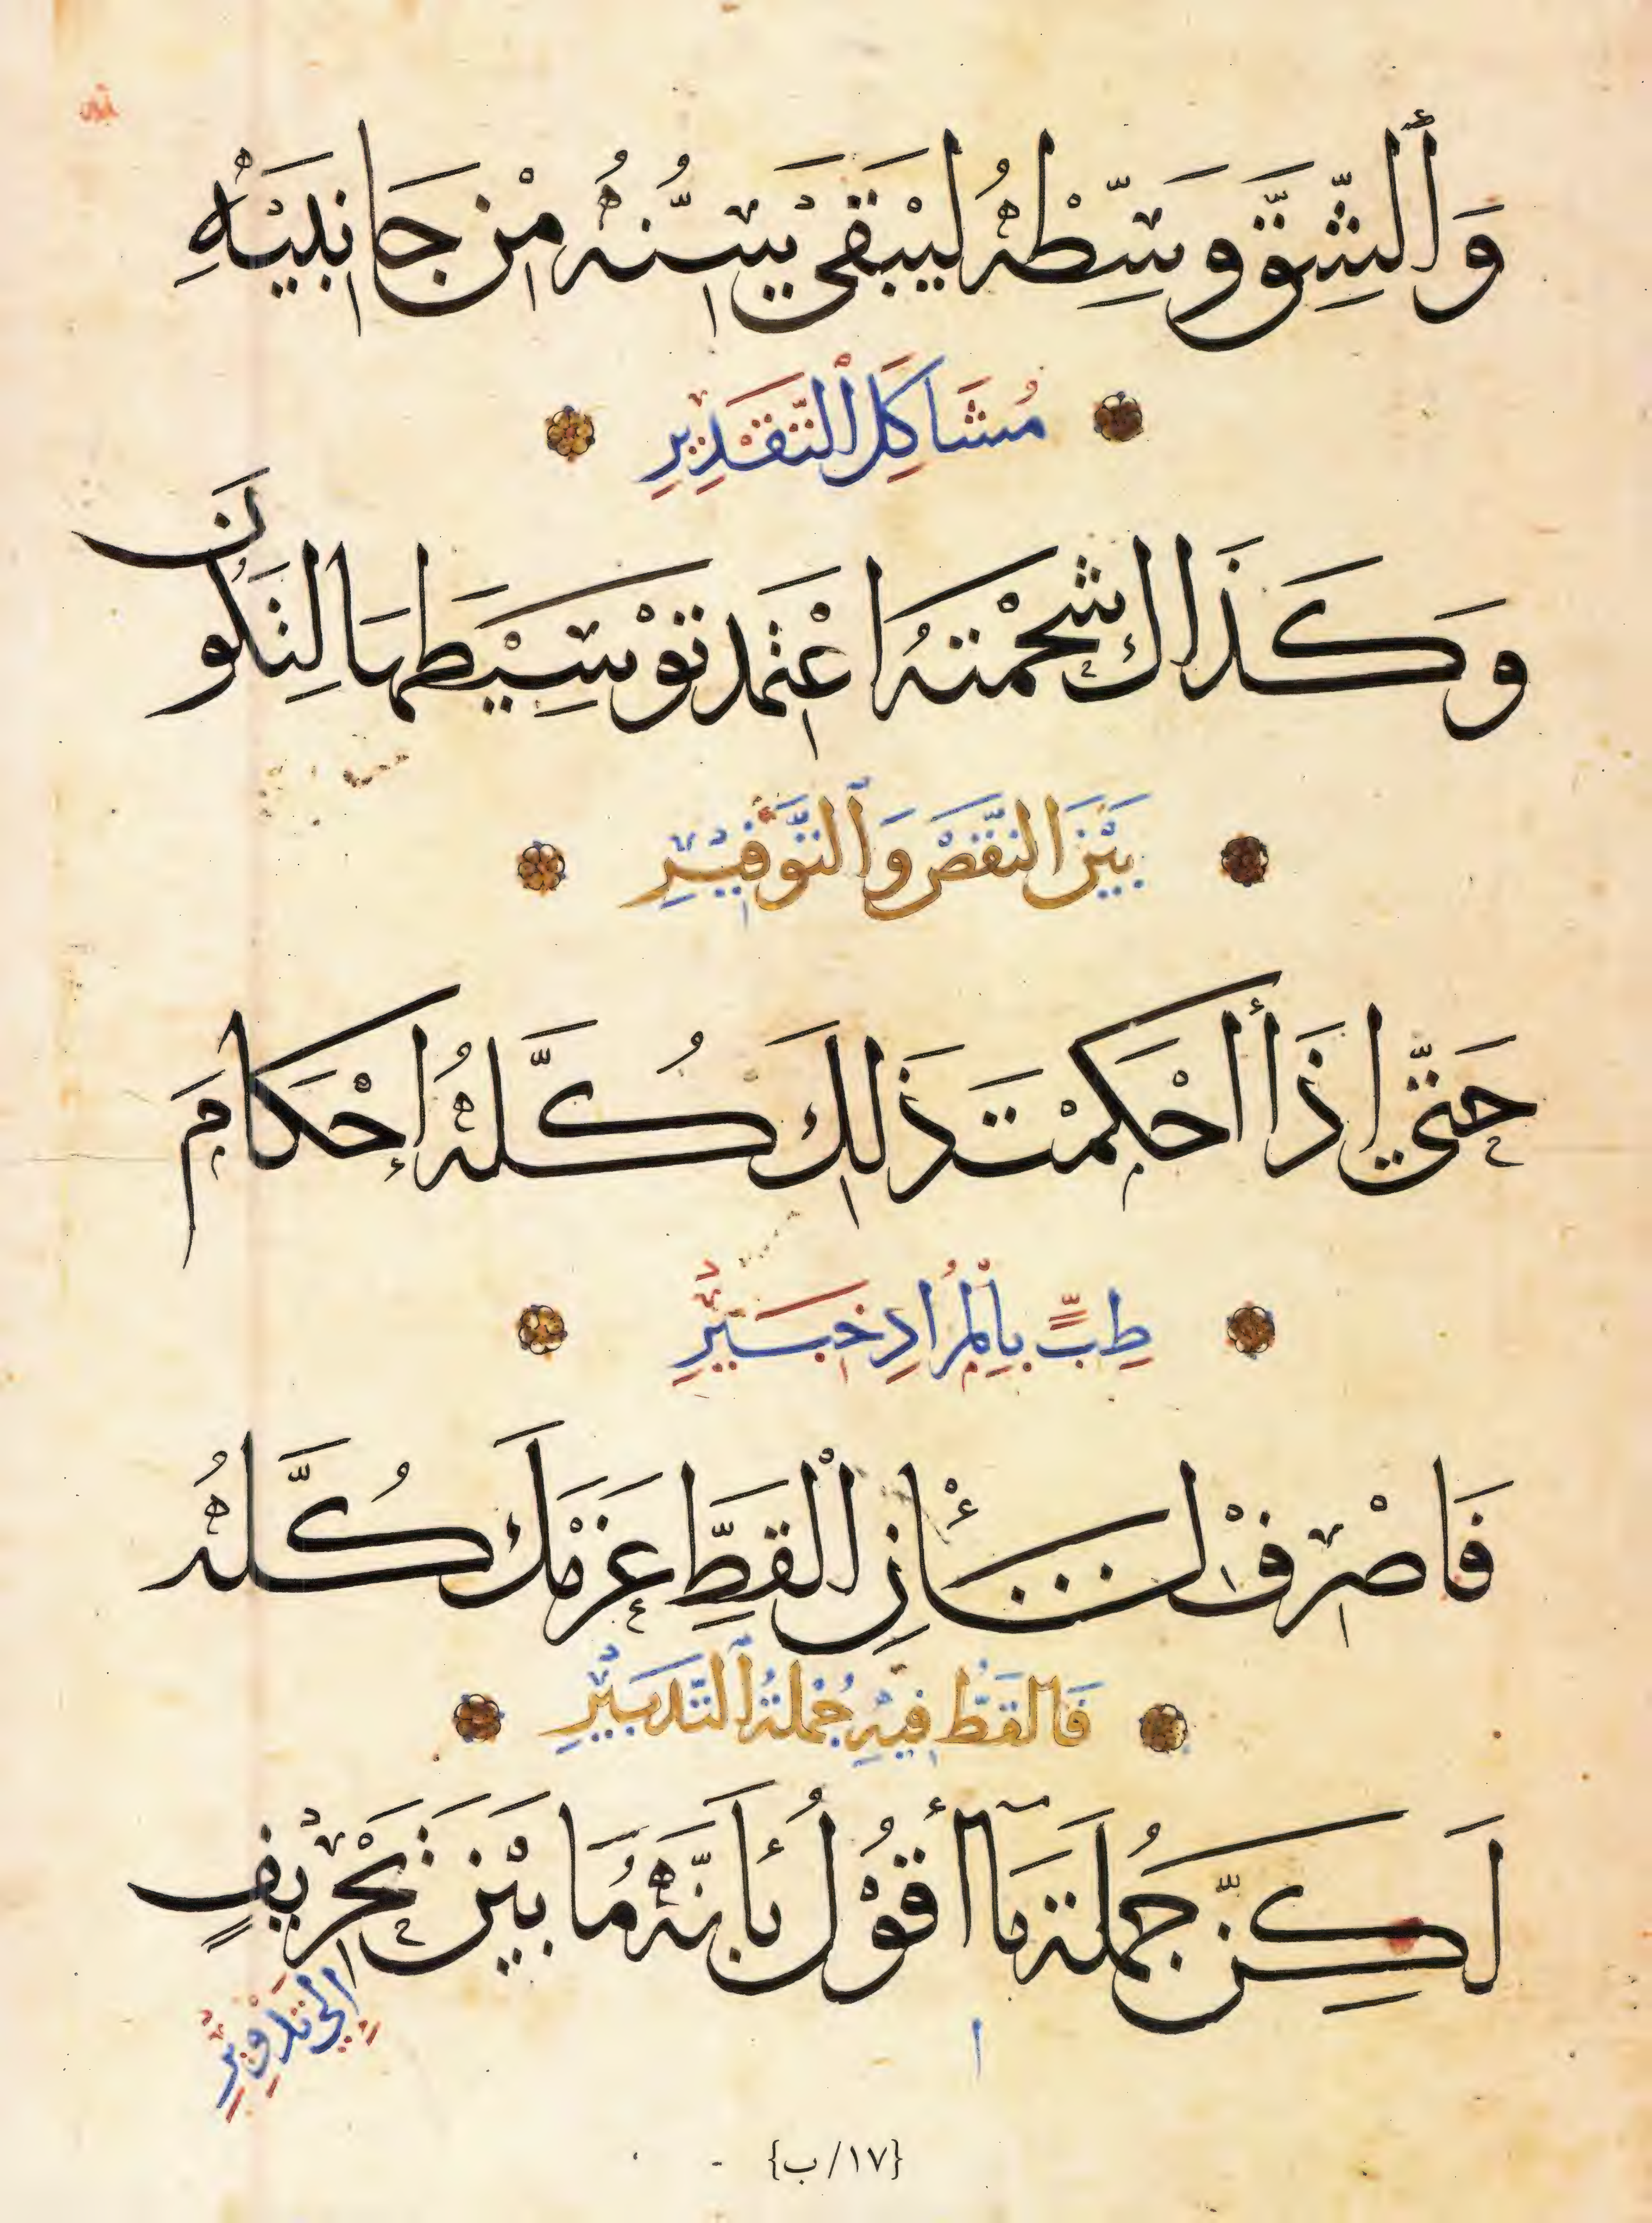 وَٱلشِّقَّ وَسِّطْهُ لِيَبْقَىٰ سِنُّهُ مِنْ جَانِبَيْهِ
مُشَاكِلَ ٱلتَّقْدِيرِ
وَكَذَاكَ شَحْمَتَهُ اعْتَمِدْ تَوْسِيْطَهَا لِتَكُونَ
بَيْنَ النَّقْصِ وَٱلتَّوْفِيْرِ
حَتَّى إِذَا أَحْكَمْتَ ذَلِكَ كُلَّهُ إِحْكَامَ
طِبٍّ بِالْمُرَادِ خَبِيْرِ
فَاصْرِفْ لِشَأْنِ الْقَطِّ عَزْمَكَ كُلَّهُ
فَالقَطُّ فِيْهِ جُمْلَةُ ٱلتَّدْبِيْرِ
لَكِنَّ جُمْلَةَ مَآ أَقُوْلُ بِأَنَّهُ مَا بَيْنَ تَحْرِيْفٍ
إِلَى تَدْوِيْرِ
{١٧/ب}